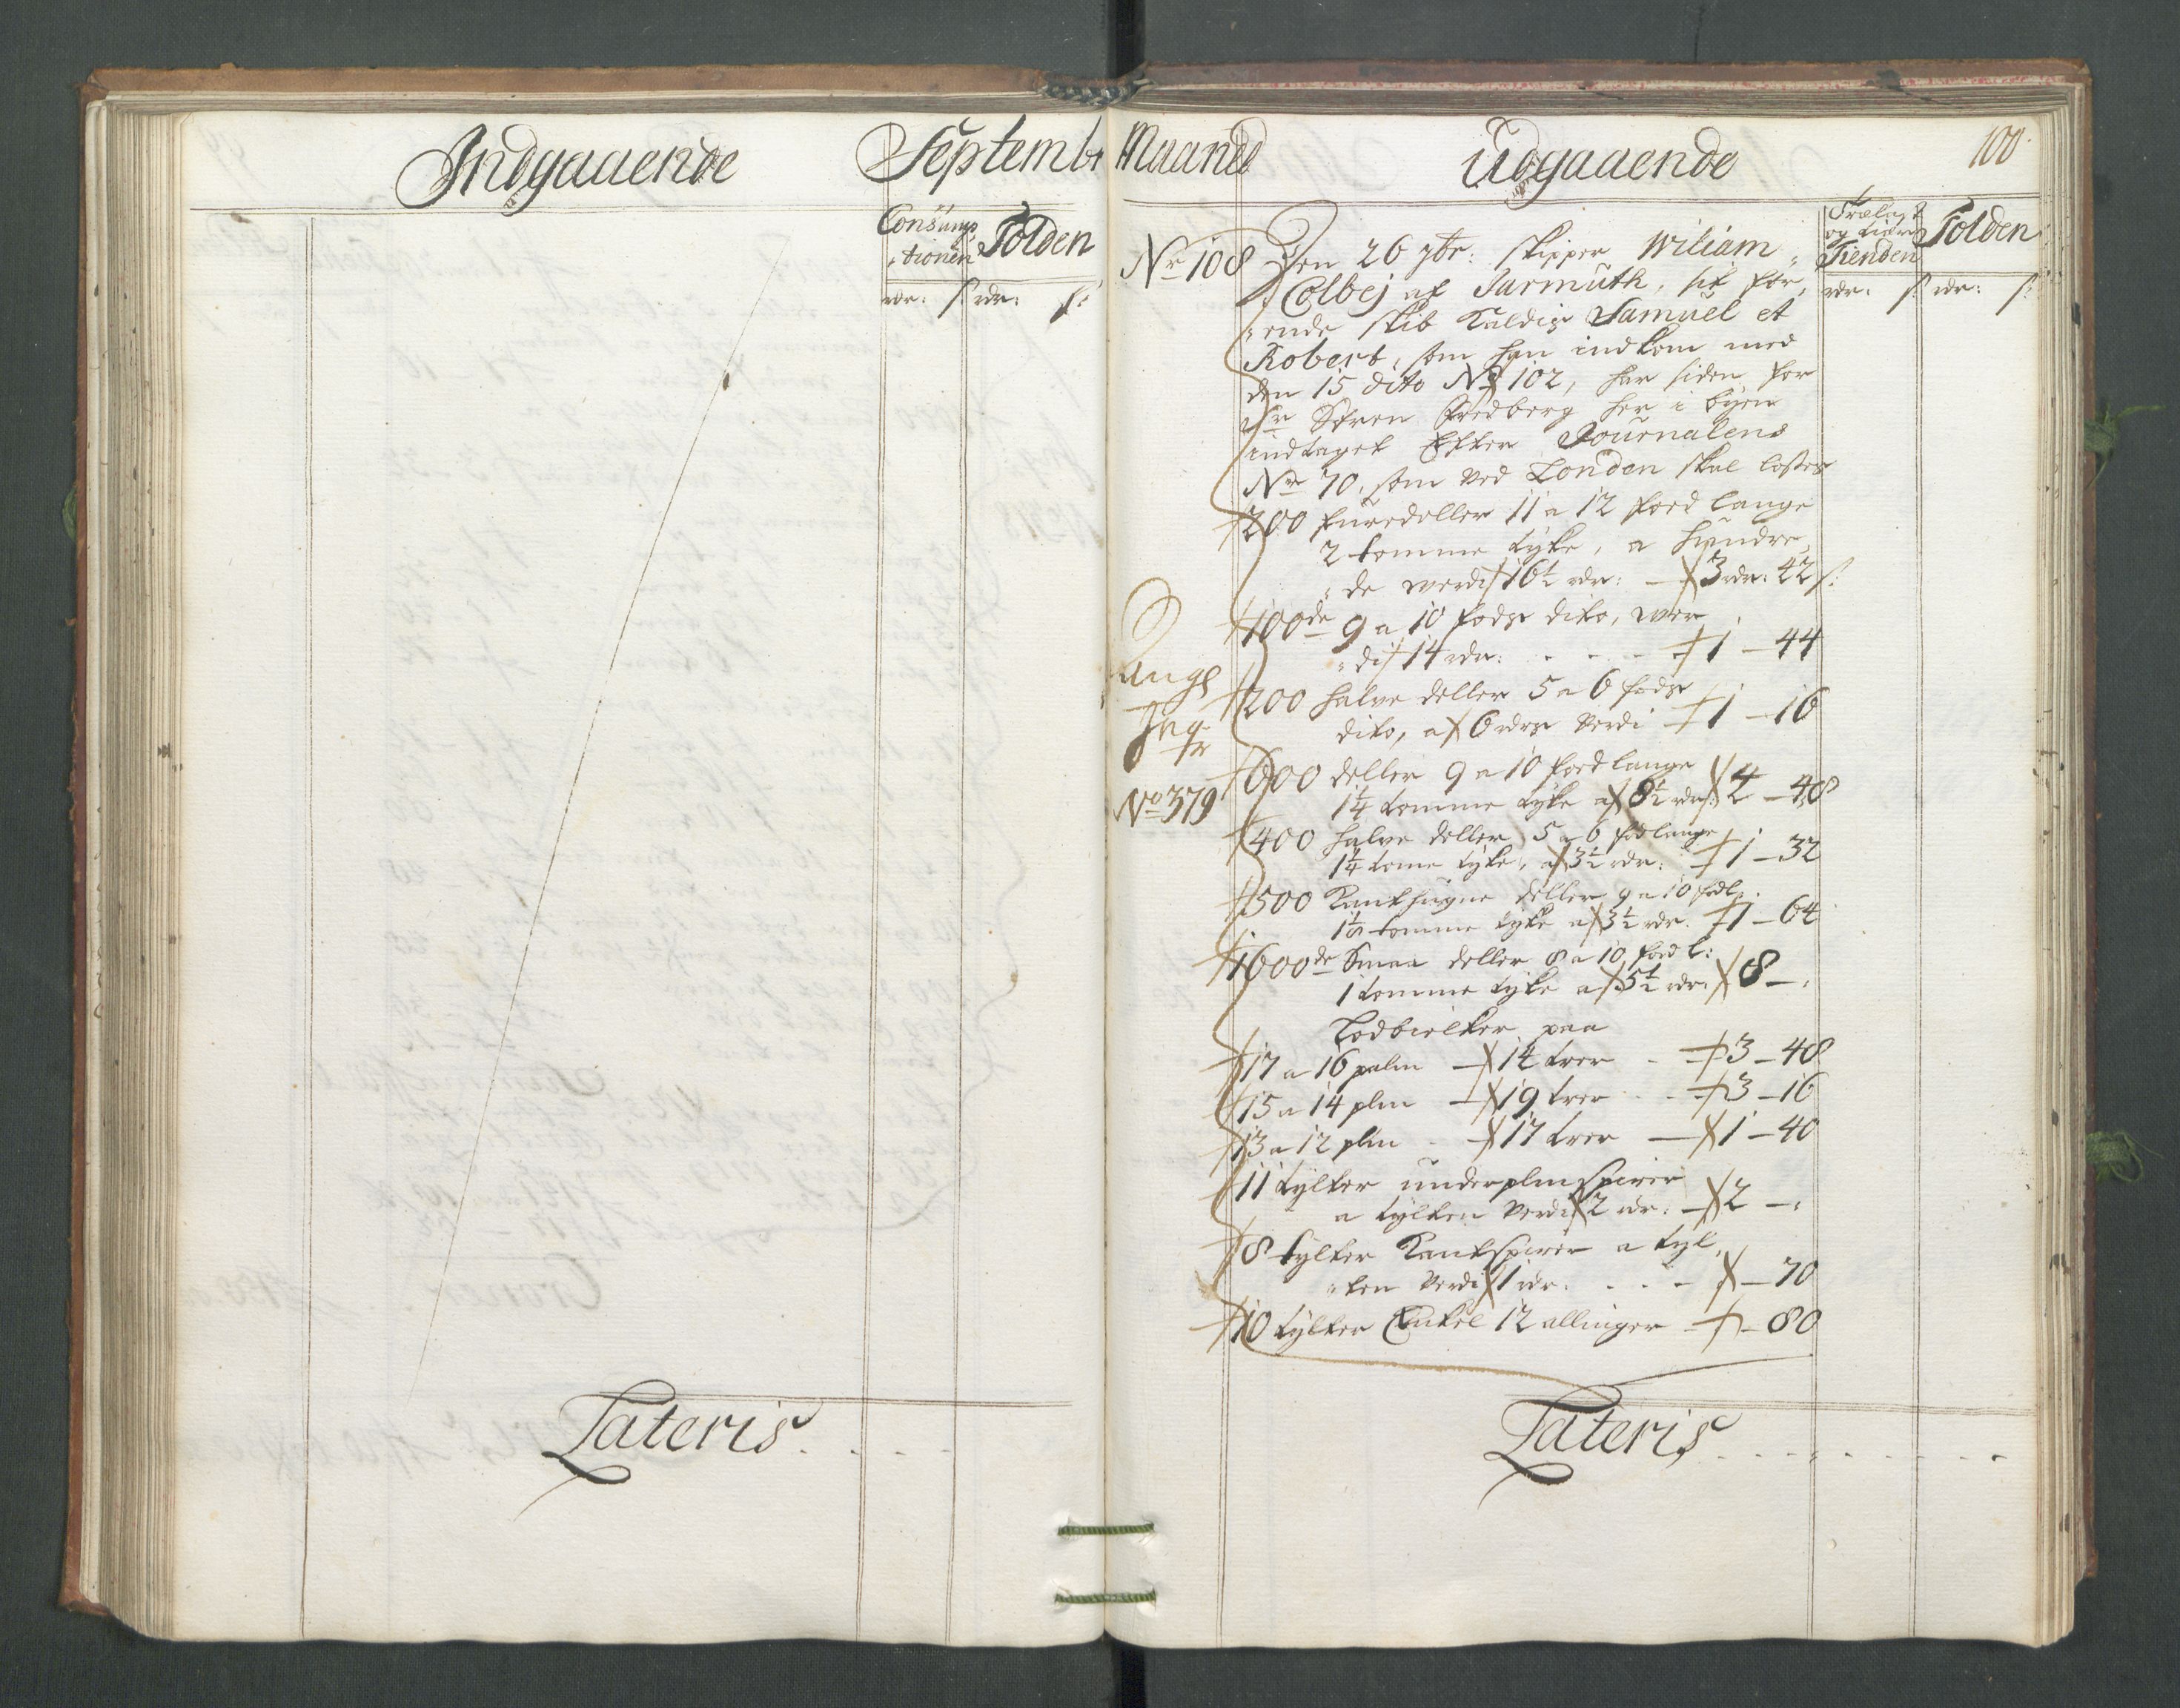 Indgaaende
Septembr Maaned
Udgaaende
100.
Consump„
„tionen
Tolden
rdr: s: rdr: s:
Trælast
og
Tienden
Tolden
rdr: s: rdr: s:
Nr 108
Den 26 7br: skipper Wiliam
Colbej af Jarmuth, sit før„
„ende skib Kaldis Samuel et
Robert, som han indkom med
den 15 dito No 102, har siden for
Sr Søren Bredberg her i byen
indtaget Efter Journalens
Nr 70, som ved Londen skal losses
200 furedeller 11 a 12 foed lange
2 tomme tyke, a hundre„
„de werdi 16½ rdr: — 3 rdr: 42 s:
100de 9 a 10 fods dito, wer
„di 14 rdr: - - - 1 — 44
200 halve deller 5 a 6 fods
dito, a 6 rdrs verdi 1 — 16
600 deller 9 a 10 foed lange
1¼ tomme tyke a 8½ rdr: 4 — 48
400 halve deller 5 a 6 fod lange
1¼ tome tyke, a 3½ rdr: 1 — 32
500 deller 9 a 10 fod l:
tomme tyke a 3½ rdr. 1 — 64
1600de Smaa deller 8 a 10 foed l:
1 tomme tyke a 5½ rdr: 8 — „
Lodbielker paa
17 a 16 palm — 14 trer - 3 — 48
15 a 14 plm — 19 trer - - 3 — 16
13 a 12 plm - — 17 trer — 1 — 40
11 tylter underplmspirer
a tylten verdi 2 rdr: — 2 — „
8 tylter Kantspirer a tyl„
„ten verdi 1 rdr: - - - — 70
10 tylter Enkel 12 allinger — - 80
No 379
Lateris - - - -
Lateris - - - - - - - -